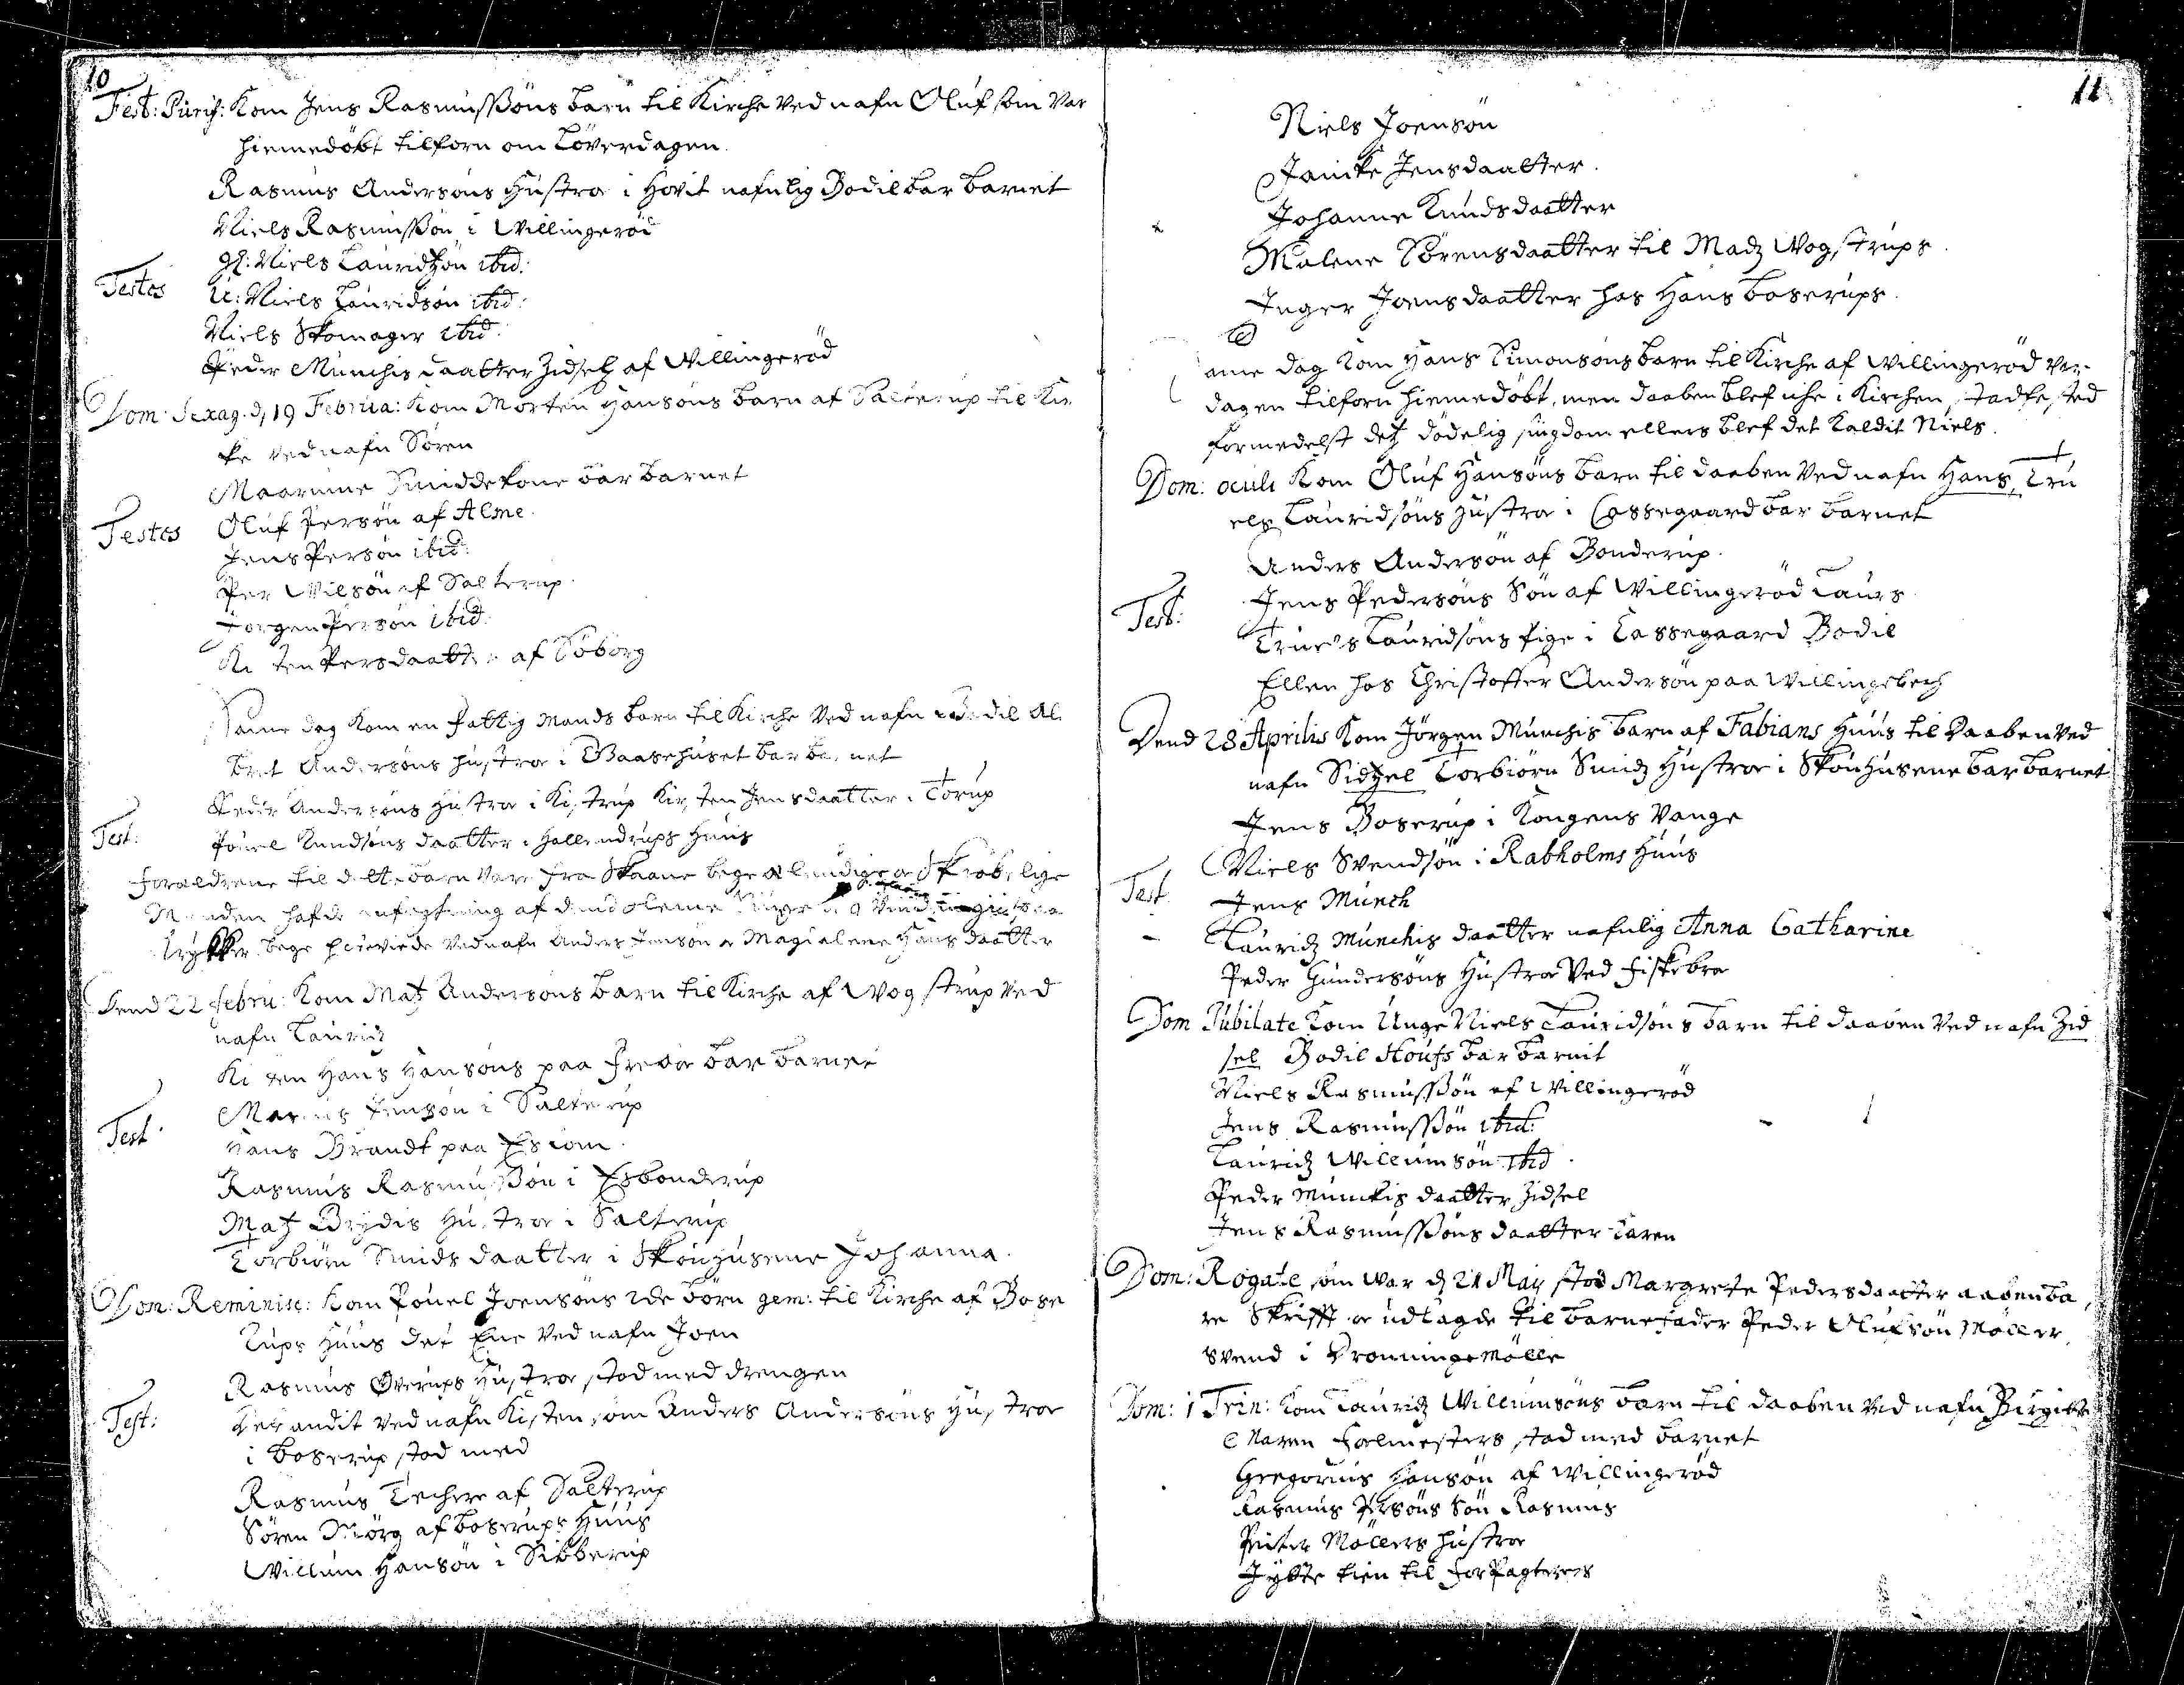 10
Fest: Purif: Kom Jens Rasmussøns barn til Kirche ved nafn Oluf som var
hiemedøbt tilforn om Løverdagen.
Rasmus Andersøns Hustroe i Hovit nafnlig Bodil bar barnet
Niels Rasmussøn i Willingerød
Gl: Niels Lauridsøn ibid:
Testes U: Niels Lauridsøn ibid:
Niels Skomager ibid:
Peder Munchis daatter Zidsel af Willingerød
Dom: Sexag. d, 19 Februa: Kom Morten Hansøns barn af Salterup til Kir
ke ved nafn Søren
Maarinne Smiddekone bar barnet
Testes Oluf Persøn af Alme.
Jens Persøn ibid:
Per Nilsøn af Salterup.
Jørgen Persøn ibid:
Ki ten Persdaatter af Søborg
Samme dag Kom en fattig Mands barn til Kirche ved nafn Bodil Al
bret Andersøns hustroe i Baasehuset bar barnet
Peder Andersøns Hustroe i Kistrup Kirsten Jensdaatter i Torup
Test: Pouel Knudsøns daatter i Hallendrups Huus
Forældrene til dette barn vare fra Skaane bege elendige Skrøbelige
Manden hafde anfegtning af
bege ved nafn Anders Jensøn Magdalene Hansdaatter
Dend 22 Febru: Kom Matz Andersøns barn til Kirche af Wogstrup ved
nafn Lauridz
Ki ten Hans Hansøns paa bar barnet
Marcus Jensøn i Salterup
Test: Hans Brandt paa Esrom.
Rasmus Rasmussøn i Esbonderup
Matz Brydis Hustroe i Salterup
Torbiørn Smids daatter i Skouhusene Johanna.
Dom: Reminisc: Kom Pouel Joensøns 2de børn gem: til Kirche af Bose
rups Huus det Ene ved nafn Joen
Rasmus Øverups Hustroe stod med drengen
Test: Det andit ved nafn Kisten som Anders Andersøns Hustroe
i Boserup stod med
Rasmus Techere af Salterup
Søren Miørg af Boserups Huus
Willum Hansøn i Sibberup
11
Niels Joensøn
Janicke Jensdaatter.
Johanne Knudsdaatter
Malene Sørensdaatter til Madz Wogstrups.
Inger Joensdaatter hos Hans Boserups.
ame dag Kom Hans Simonsøns barn til Kirche af Willingerød var
dagen tilforn hiemedøbt, men daaben blef iche i Kirchen stadfested
formedelst detz dødelig siugdom ellers blef det Kaldit Niels.
Dom: oculi Kom Oluf Hansøns barn til daaben ved nafn Hans, Tru
els Lauridsøns Hustroe i Cassegaard bar barnet
Anders Andersøn af Bonderup.
Test: Jens Pedersøns Søn af Willingerød Laurs
Truels Lauridsøns Pige i Cassegaard Bodil
Ellen hos Christoffer Andersøn paa Willingebech
Dend 28 Aprilis Kom Jørgen Munchis barn af Fabians Huus til Daaben ved
nafn Sidzel Torbiørn Smidz Hustroe i Skouhusene bar barnet
Jens Boserup i Kongens Vange
Niels Svendsøn i Rabholms Huus
Test. Jens Munch
Lauridz Munchis daatter nafnlig Anna Catharine
Peder Gundersøns Hustroe ved Fiskebro
Dom Jubilate Kom Unge Niels Lauridsøns barn til daaben ved nafn Zid
sel Bodil Houfs bar barnit
Niels Rasmussøn af Willingerød
Jens Rasmussøn ibid:
Lauridz Willumsøn ibid.
Peder Munckis daatter Zidsel
Jens Rasmussøns daatter Karen
Dom: Rogate som war d, 21 May stod Margrete Pedersdaatter aabenba
re Skrifft oc udlagde til barnefader Peder Olufsøn Møller
svend i Dronningemølle
Dom: 1 Trin: Kom Lauridz Willumsøns barn til daaben ved nafn Birgitte
Maren Foelmesters stod med barnet
Gregorius Hansøn af Willingerød
Rasmus Persøns Søn Rasmus
Peiter Møllers hustroe
Jytte tien til Forpagterens